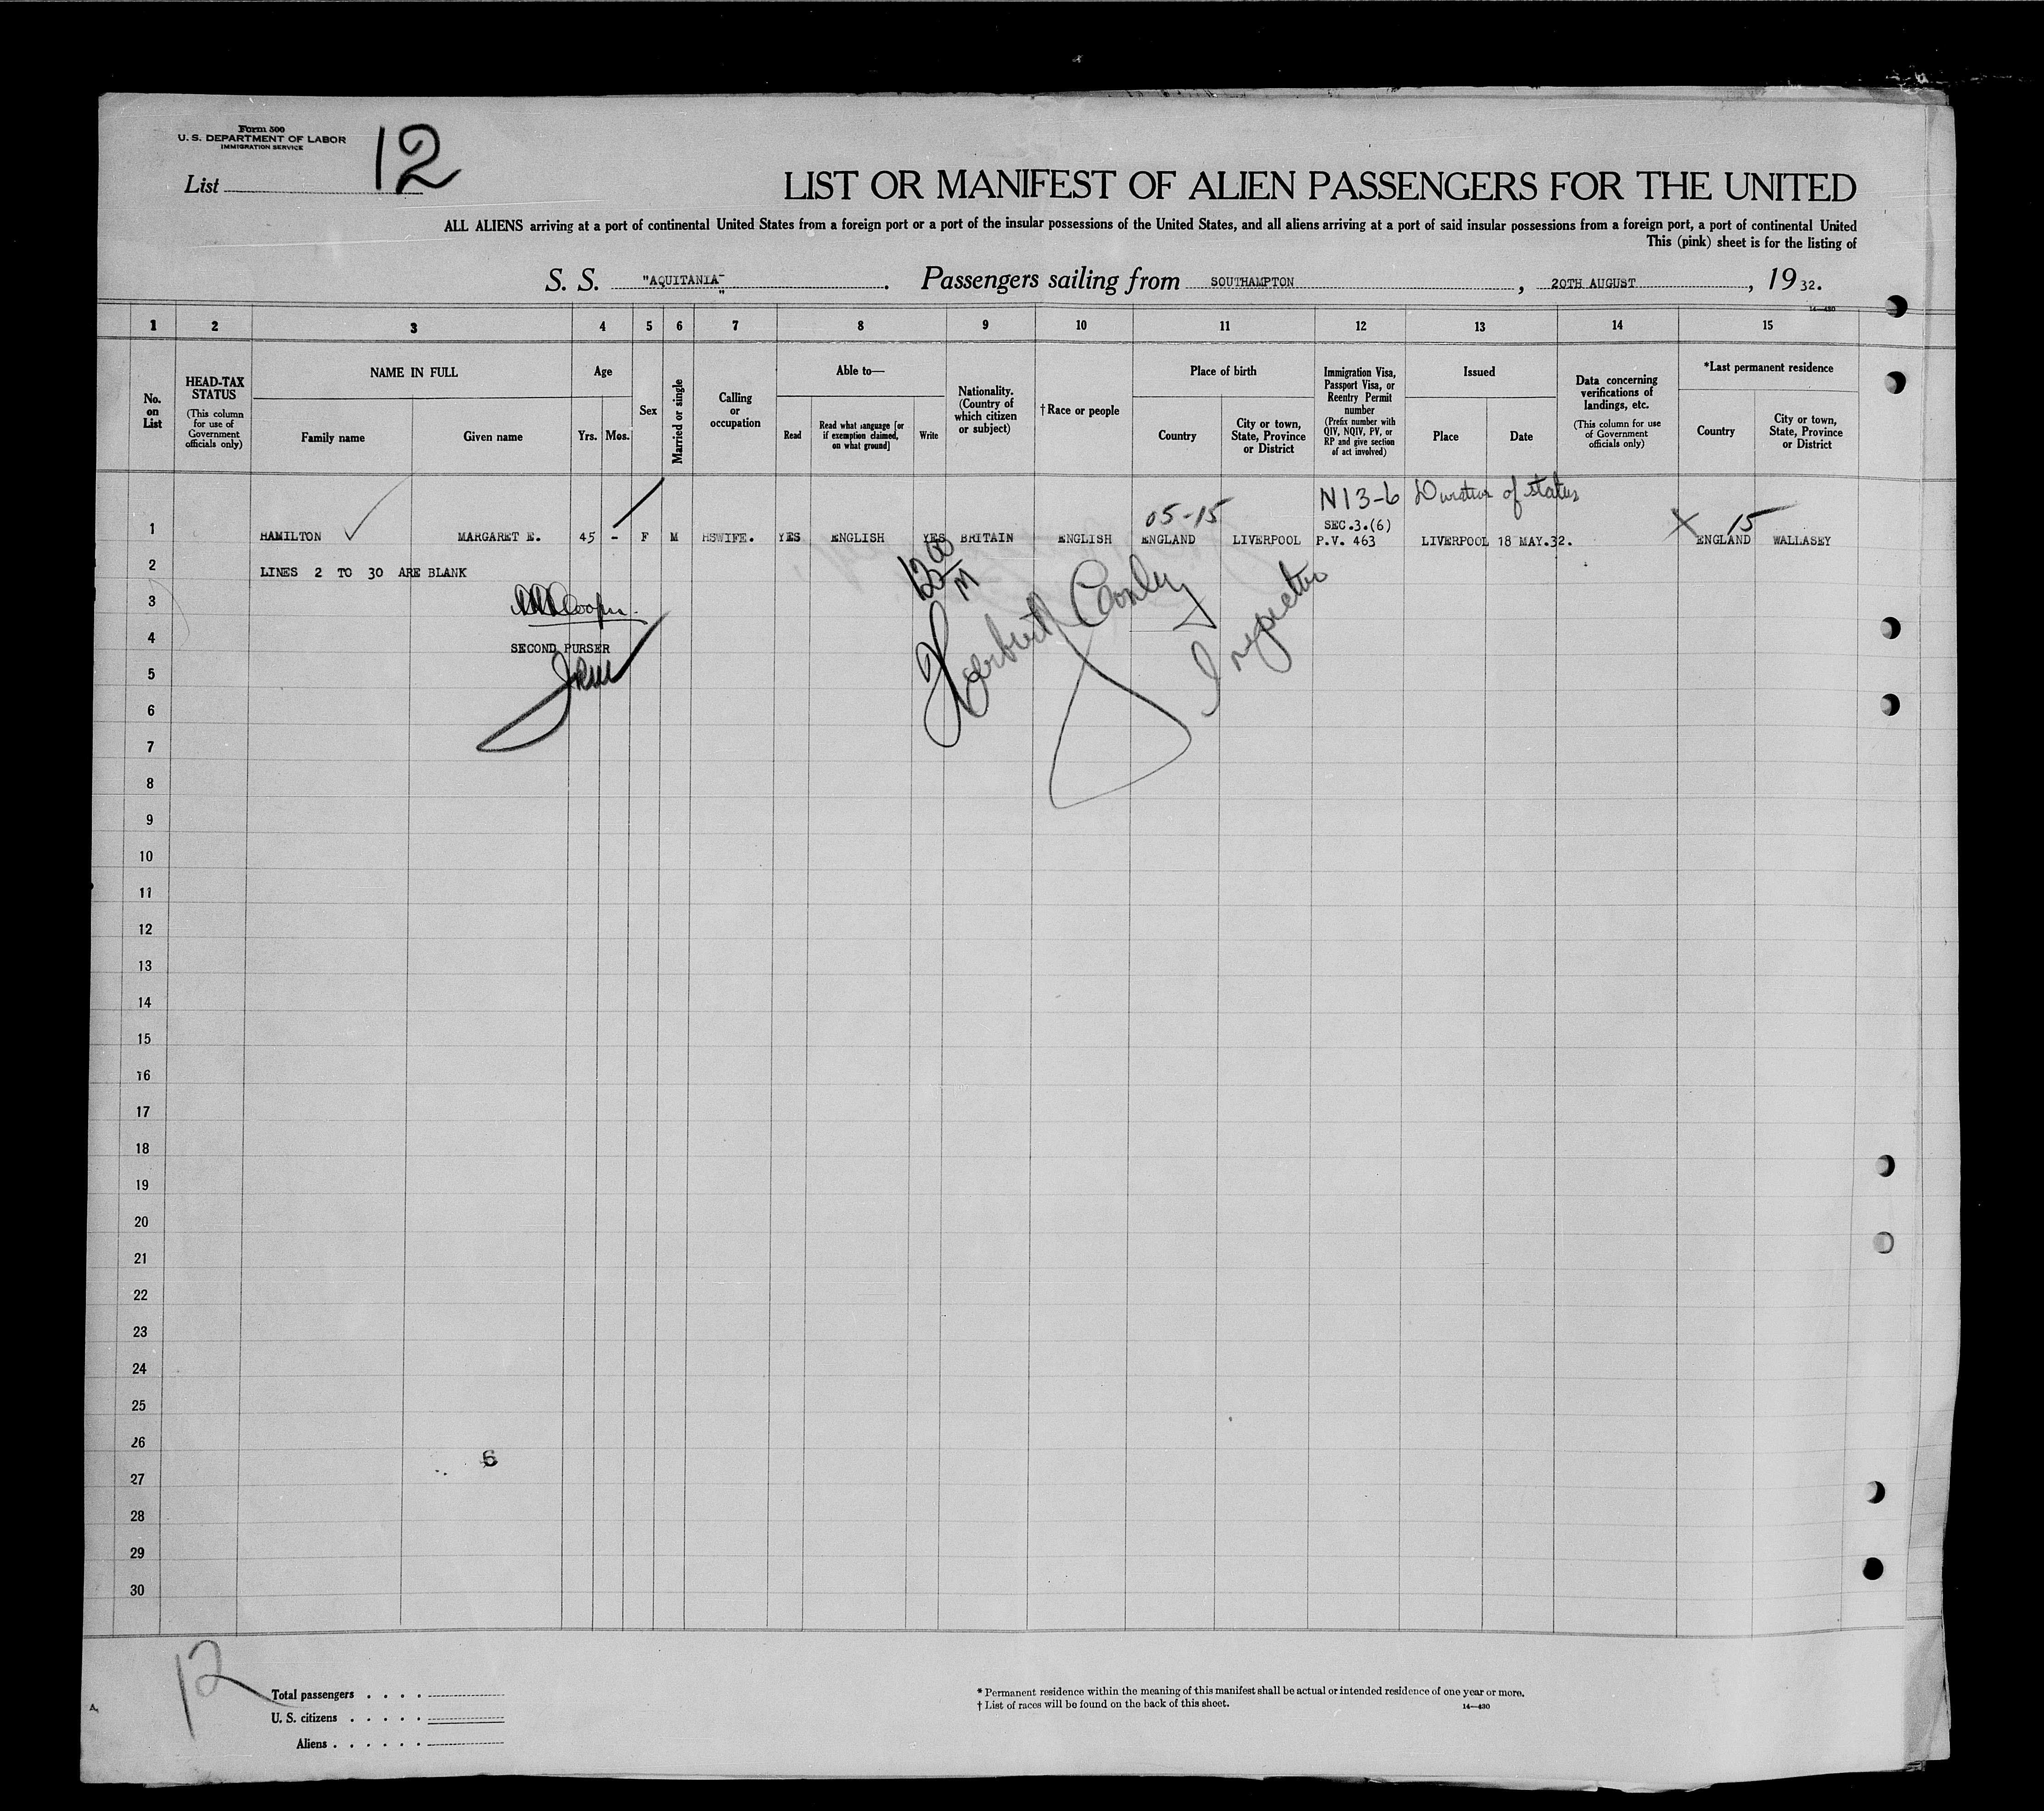 Form 500
U. S. DEPARTMENT OF LABOR
IMMIGRATION SERVICE
List 12
LIST OR MANIFEST OF ALIEN PASSENGERS FOR THE UNITED
ALL ALIENS arriving at a port of continental United States from a foreign port or a port of the insular possessions of the United States, and all aliens arriving at a port of said insular possessions from a foreign port, a port of continental United
This (pink) sheet is for the listing of
S. S. "AQUITANIA" . Passengers sailing from SOUTHAMPTON , 20TH AUGUST , 19 32.
14—430
1 2 3 4 5 6 7 8 9 10 11 12 13 14 15
No. on List
HEAD-TAX STATUS
(This column for use of Government officials only)
NAME IN FULL
Family name
Given name
Age
Yrs.
Mos.
Sex
Married or single
Calling or occupation
Able to—
Read
Read what language [or if exemption claimed, on what ground]
Write
Nationality. (Country of which citizen or subject)
†Race or people
Place of birth
Country
City or town, State, Province or District
Immigration Visa, Passport Visa, or Reentry Permit number
(Prefix number with QIV, NQIV, PV, or RP and give section of act involved)
Issued
Place
Date
Data concerning verifications of landings, etc.
(This column for use of Government officials only)
*Last permanent residence
Country
City or town, State, Province or District
05-15 N13-6 Duration of status
SEC.3.(6) X 15
1 HAMILTON MARGARET E. 45 - F M HSWIFE. YES ENGLISH YES BRITAIN ENGLISH ENGLAND LIVERPOOL P.V. 463 LIVERPOOL 18 MAY.32. ENGLAND WALLASEY
2 LINES 2 TO 30 ARE BLANK
1200
M
3
Cooper.
Herbert Conley
Inspector
4
SECOND PURSER
5
6
7
8
9
10
11
12
13
14
15
16
17
18
19
20
21
22
23
24
25
26
6
27
28
29
30
12
Total passengers . . . .
U. S. citizens . . . . .
Aliens . . . . . .
* Permanent residence within the meaning of this manifest shall be actual or intended residence of one year or more.
† List of races will be found on the back of this sheet.
14—430